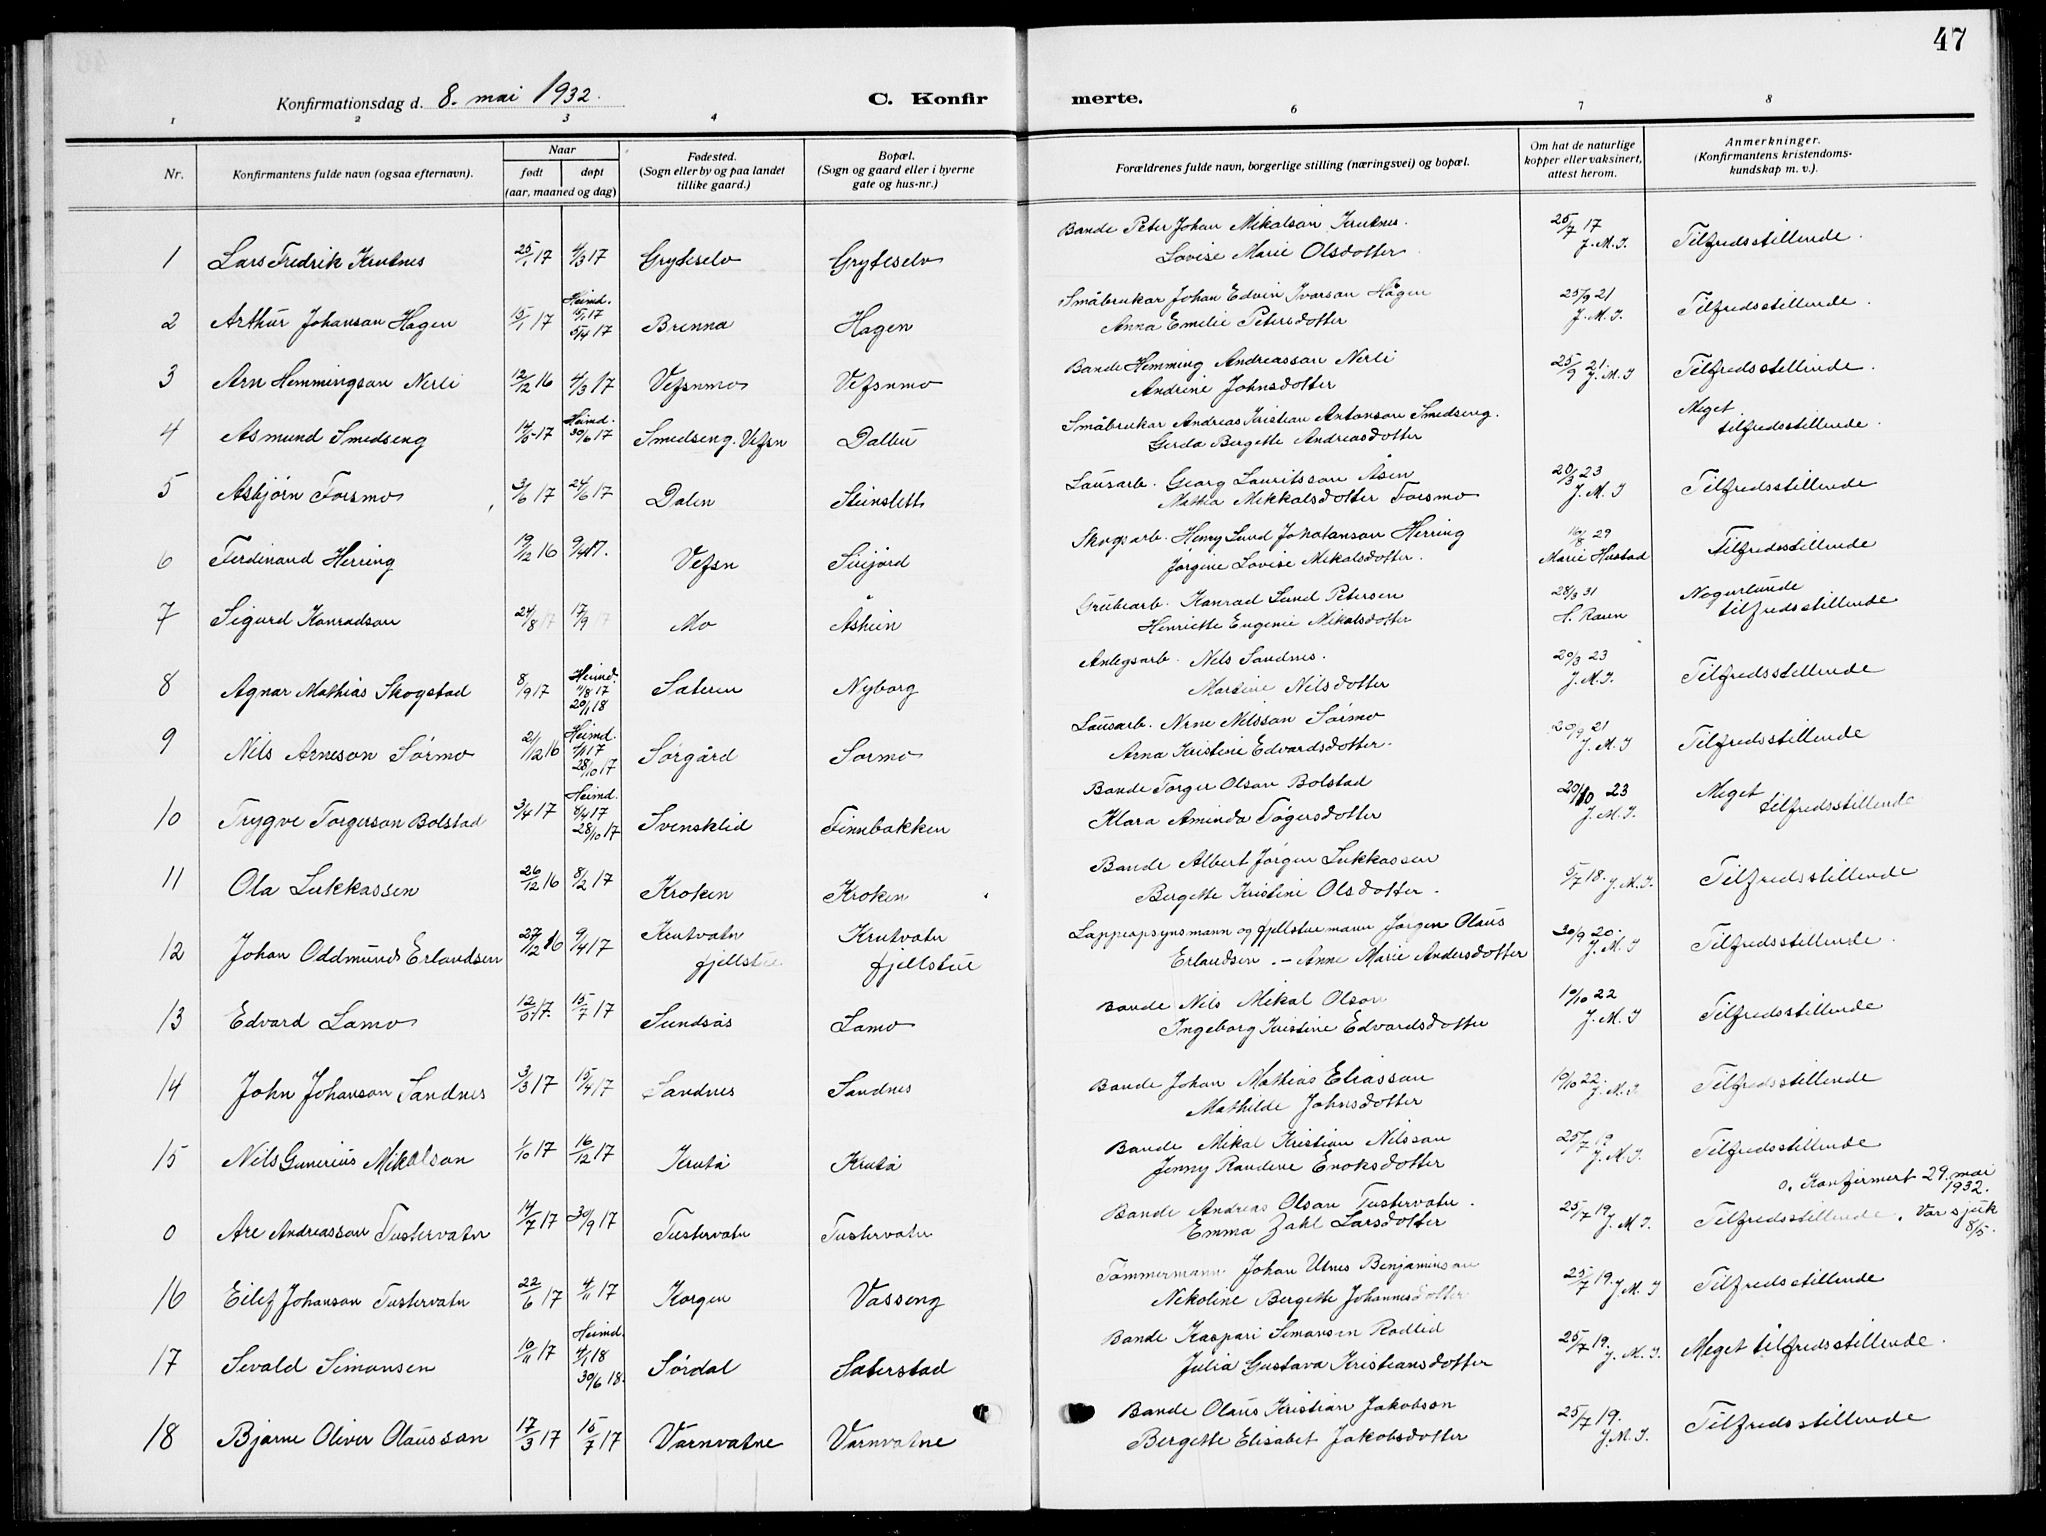 47
Konfirmationsdag d. 8. mai 1932. C. Konfirmerte.
1 2 3 4 6 7 8
Nr. Konfirmantens fulde navn (ogsaa efternavn). Naar født døpt (aar, maaned og dag) Fødested. (Sogn eller by og paa landet tillike gaard.) Bopæl. (Sogn og gaard eller i byerne gate og hus-nr.) Forældrenes fulde navn, borgerlige stilling (næringsvei) og bopæl. Om hat de naturlige kopper eller vaksinert, attest herom. Anmerkninger. (Konfirmantens kristendomskundskap m. v.).
1 Lars Fredrik Krutnes 25/1 17 4/3 17 Gryteselv Gryteselv Bonde Peter Johan Mikalson Krutnes. 25/7 17 J.M.I. Tilfredsstillende.
Lovise Marie Olsdotter
2 Arthur Johanson Hagen 15/1 17 Heimd. 15/1 17 5/4 17 Brenna Hagen Småbrukar Johan Edvin Ivarson Hagen 25/9 21 J.M.I. Tilfredsstillende.
Anna Emilie Petersdotter
3 Arn Hemmingson Nerli 12/12 16 4/3 17 Vefsnmo Vefsnmo Bonde Hemming Andreasson Nerli 25/9 21. J.M.I Tilfredsstillende.
Andrine Johnsdotter
4 Asmund Smedseng 14/5 17 Heimd. 30/6 17 Smedseng. Vefsn Dalbu Småbrukar Andreas Kristian Antonson Smedseng. Meget tilfredsstillende.
Gerda Bergette Andreasdotter
5 Asbjørn Forsmo 3/6 17 24/6 17 Dalen Steinslett Lausarb. Georg Lauritsson Åsen 20/3 23 J.M.I Tilfredsstillende
Mathea Mikkalsdotter Forsmo
6 Ferdinand Herring 19/12 16 9/4 17. Vefsn Sirijord Skogsarb. Henry Lund Johatanson Herring 16/8 29 Marie Hustad Tilfredsstillende
Jørgine Lovise Mikalsdotter.
7 Sigurd Konradson 24/8 17 17/9 17 Mo Åshein Grubearb. Konrad Lund Petersen 28/3 31 Nogurlunde tilfredsstillende
Henriette Eugenie Nikolsdotter
8 Agnar Mathias Skogstad 8/9 17 Heimd. 11/8 17 20/1 18 Sæteren Nyborg Anlegsarb. Nils Sandnes. 20/3 23 J.M.I. Tilfredsstillende
Martine Nilsdotter
9 Nils Arneson Sørmo 21/12 16 Heimd. 1/1 17 28/10 17 Sørgård Sørmo Lausarb. Arne Nilsson Sørmo 20/9 21 J.M.I Tilfredsstillende
Arna Kristine Edvardsdotter.
10 Trygve Torgerson Bolstad 3/4 17 Heimd. 6/4 17 28/10 17 Svensklid Finnbakken Bonde Torger Olson Bolstad 20/10 23 J.M.I. Meget tilfredsstillende
Klara Aminda Tøgersdotter
11 Ola Lukkassen 26/12 16 8/2 17 Kroken Kroken Bonde Albert Jørgen Lukkassen 5/7 18. J.M.I. Tilfredsstillende
Bergette Kristine Olsdotter.
12 Johan Oddmund Erlandsen 27/12 16 9/4 17 Krutvatn fjellstue Krutvatn fjellstue Lappeopsynsmann og fjellstuemann Jørgen Olaus 30/9 20. J.M.I Tilfredsstillende.
Erlandsen. - Anne Marie Andersdotter
13 Edvard Lamo 12/5 17. 15/7 17 Sundsås Lamo Bonde Nils Mikal Olson 10/10 22 J.M.I Tilfredsstillende
Ingeborg Kristine Edvardsdotter
14 John Johanson Sandnes 3/3 17 15/4 17 Sandnes Sandnes Bonde Johan Mathias Eliasson 10/10 22. J.M.I Tilfredsstillende
Mathilde Johnsdotter
15 Nils Gunerius Mikalson 1/10 17 16/12 17 Krutå Krutå Bonde Mikal Kristian Nilsson 25/7 19 J.M.I. Tilfredsstillende
Jenny Randine Enoksdotter
0. Konfirmert 29. mai 1932.
0 Are Andreasson Tustervatn 14/7 17 30/9 17 Tustervatn Tustervatn Bonde Andreas Olson Tustervatn. 25/7 19 J.M.I. Tilfredsstillende. Var sjuk 8/5.
Emma Zahl Larsdotter
16 Eilif Johanson Tustervatn 22/6 17 4/11 17 Korgen Vasseng Tømmermann Johan Utnes Benjaminson 25/7 19. J.M.I Tilfredsstillende
Nikoline Bergette Johannesdotter
17 Sevald Simonsen 10/11 17 Heimd. 4/1 18 30/6 18. Sørdal Sæterstad Bonde Kaspari Simonsen Rødlid 25/7 19. J.M.I. Meget tilfredsstillende.
Julia Gustava Kristiansdotter
18 Bjarne Oliver Olausson 17/3 17 15/7 17 Varnvatne Varnvatne Bonde Olaus Kristian Jakobson 25/7 19. J.M.I. Tilfredsstillende
Bergette Elisabet Jakobsdotter